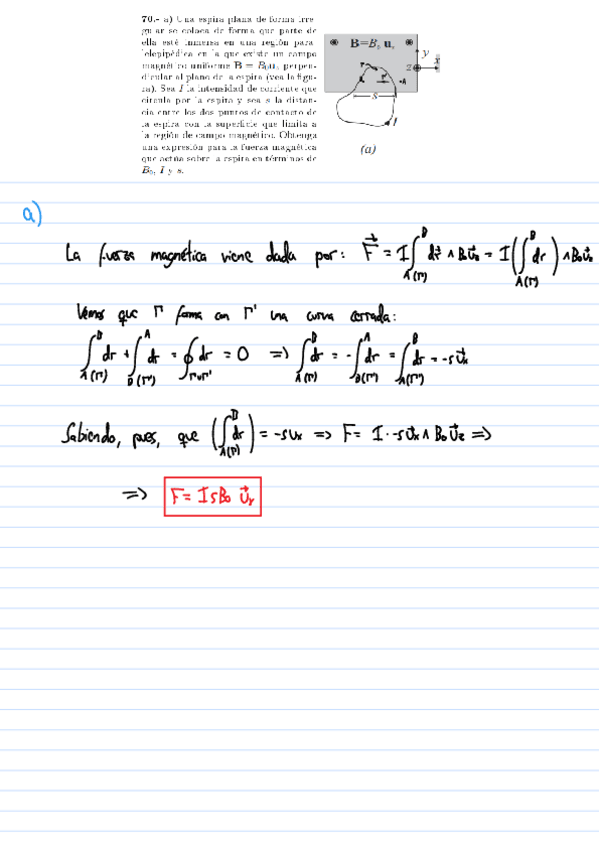 70.- a) Una espira plana de forma irre-
gular se coloca de forma que parte de
ella esté inmersa en una región para-
lelepipédica en la que existe un campo
magnético uniforme B = B₀u_z perpen-
dicular al plano de la espira (vea la figu-
ra). Sea I la intensidad de corriente que
circula por la espira y sea s la distan-
cia entre los dos puntos de contacto de
la espira con la superficie que limita a
la región de campo magnético. Obtenga
una expresión para la fuerza magnética
que actúa sobre la espira en términos de
B₀, I y s.
B=B₀ u_z
y
z
x
A
s
I
(a)
a)
La fuerza magnética viene dada por: F⃗ = I∫_{A(Γ)}^{B} dr⃗ ∧ B₀u⃗_z = I(∫_{A(Γ)}^{B} dr) ∧ B₀u⃗_z
Vemos que Γ forma con Γ' una curva cerrada:
∫_{A(Γ)}^{B} dr + ∫_{B(Γ')}^{A} dr = ∮_{Γ∪Γ'} dr = 0 => ∫_{A(Γ)}^{B} dr = -∫_{B(Γ')}^{A} dr = ∫_{A(Γ')}^{B} dr = -s u⃗_x
Sabiendo, pues, que (∫_{A(Γ)}^{B} dr) = -su_x => F = I · -su⃗_x ∧ B₀ u⃗_z =>
=> F = I s B₀ u⃗_y